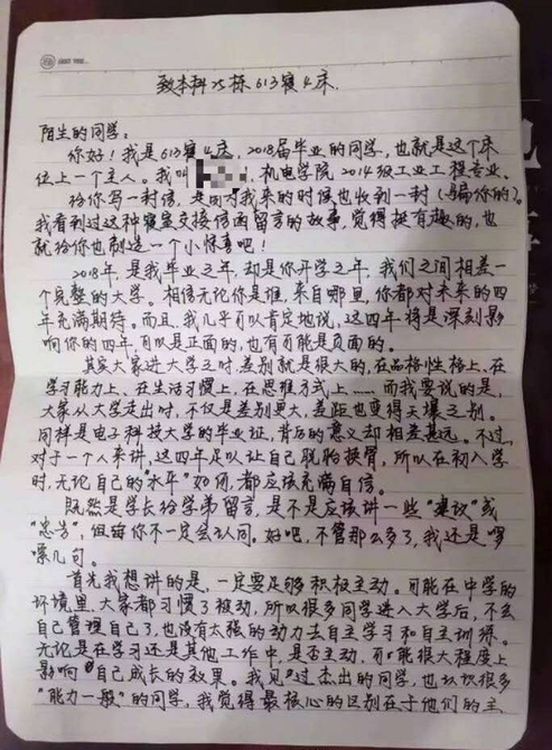 致本科25栋613寝4床.
陌生的同学:
你好!我是613寝4床,2018届毕业的同学,也就是这个床
位上一个主人。我叫 ,机电学院2014级工业工程专业.
给你写一封信,是因为我来的时候也收到一封(骗你的)。
我看到过这种寝室交接信函留言的故事,觉得挺有趣的,也
就给你也制造一个小惊喜吧!
2018年,是我毕业之年,却是你开学之年,我们之间相差一
个完整的大学。相信无论你是谁,来自哪里,你都对未来的四
年充满期待。而且,我几乎可以肯定地说,这四年将是深刻影
响你的四年,可以是正面的,也有可能是负面的。
其实大家进大学之时,差别就是很大的,在品格性格上、在
学习能力上、在生活习惯上,在思维方式上……而我要说的是,
大家从大学走出时,不仅是差别更大,差距也变得天壤之别。
同样是电子科技大学的毕业证,背后的意义却相差甚远。不过,
对于一个人来讲,这四年足以让自己脱胎换骨,所以在初入学
时,无论自己的"水平"如何,都应该充满自信。
既然是学长给学弟留言,是不是应该讲一些"建议"或
"忠告",但每你不一定会认同。好吧,不管那么多了,我还是啰
嗦几句。
首先我想讲的是,一定要足够积极主动。可能在中学的
环境里,大家都习惯了被动,所以很多同学进入大学后,不会
自己管理自己了,也没有太强的动力去自主学习和自主训练。
无论是在学习还是其他工作中,是否主动,可能很大程度上
影响自己成长的效果。我见过杰出的同学,也认识很多
"能力一般"的同学,我觉得最核心的区别在于他们的主